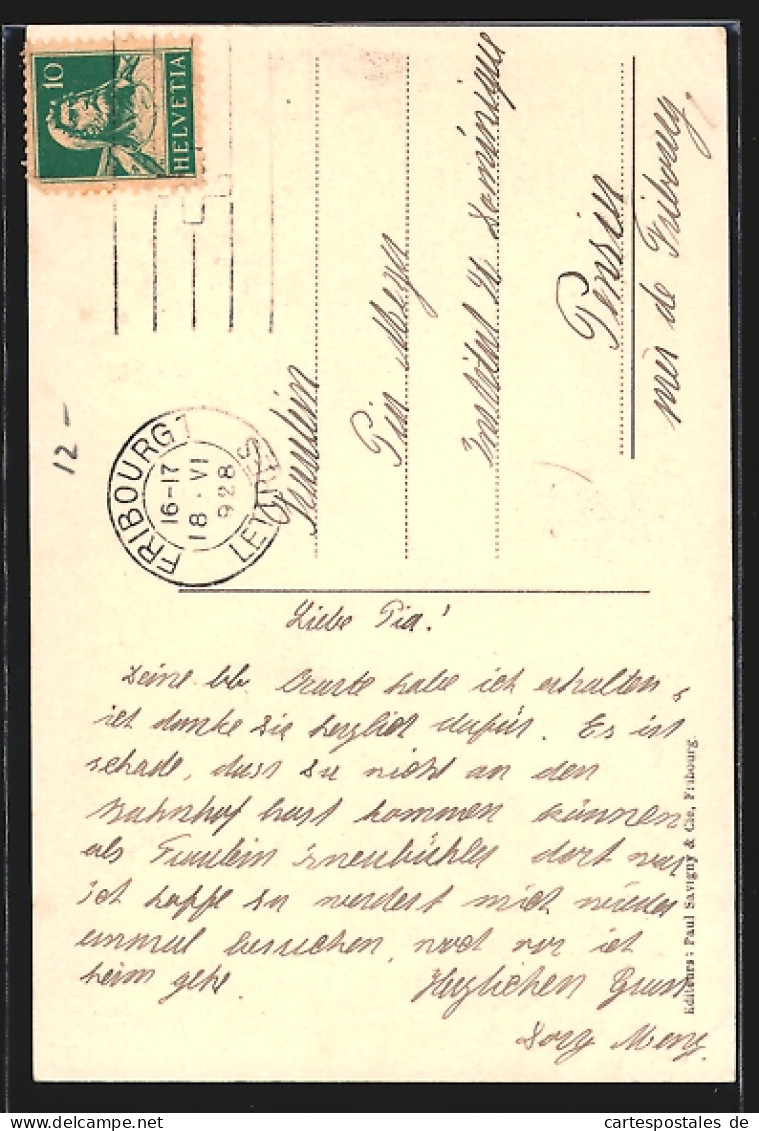 10
HELVETIA
FRIBOURG 1
16-17
18 · VI
928
LETTRES
12 -
Fräulein
Pia Meyer
Institut St Dominique
Pensier
près de Fribourg.
Liebe Pia!
Deine lb. Carte habe ich erhalten,
ich danke Dir herzlich dafür. Es ist
schade, dass Du nicht an den
Bahnhof hast kommen können
als Fräulein dort war
Ich hoffe Du werdest mich wieder
einmal besuchen, noch vor ich
heim gehe. Herzlichen Gruss
Editeurs: Paul Savigny & Cie, Fribourg.
cartespostales de